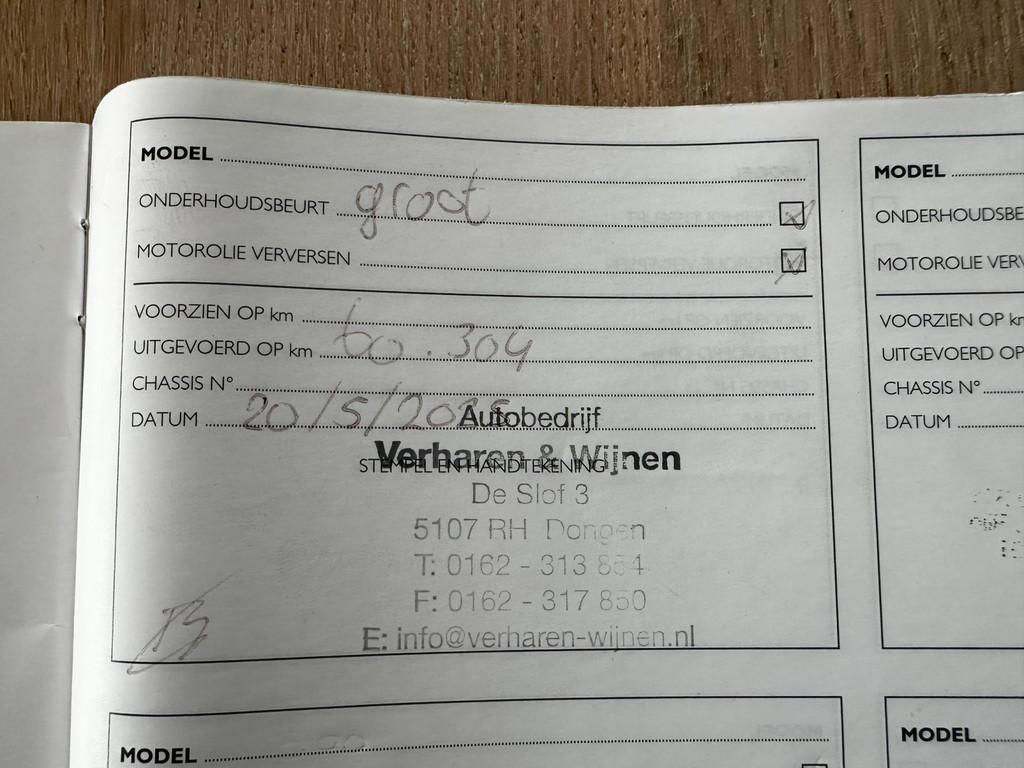 MODEL
ONDERHOUDSBEURT groot
MOTOROLIE VERVERSEN
VOORZIEN OP km
UITGEVOERD OP km 60.304
CHASSIS N°
DATUM 20/5/20
Autobedrijf
Verharen & Wijnen
STEMPEL EN HANDTEKENING
De Slof 3
5107 RH Dongen
T: 0162 - 313 854
F: 0162 - 317 850
E: info@verharen-wijnen.nl
MODEL
ONDERHOUDSBE
MOTOROLIE VERV
VOORZIEN OP km
UITGEVOERD OP
CHASSIS N°
DATUM
MODEL
MODEL